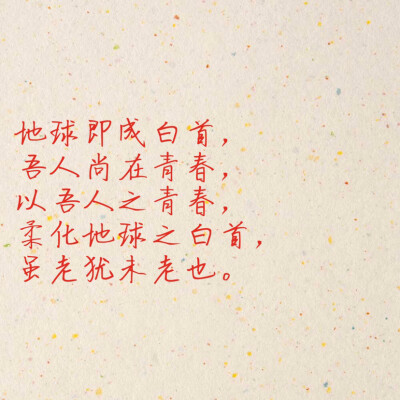 地球即成白首，
吾人尚在青春，
以吾人之青春，
柔化地球之白首，
虽老犹未老也。